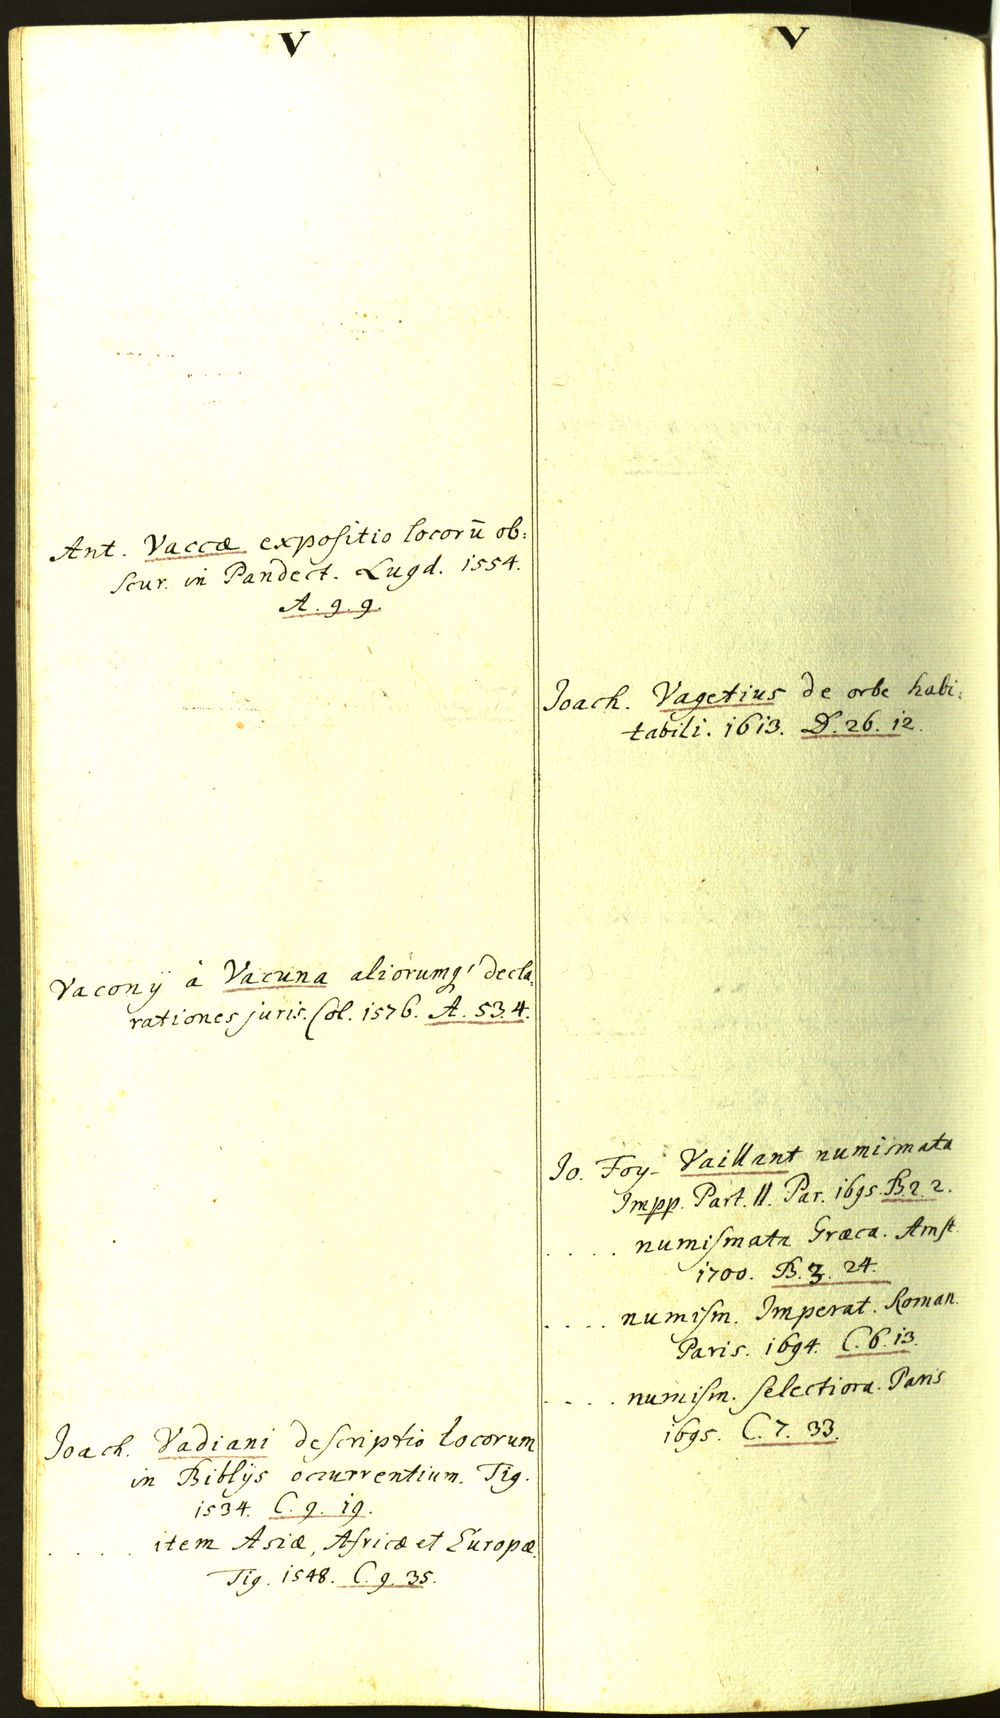 V
Ant. Vaccæ expositio locorū ob:
scur. in Pandect. Lugd. 1554.
A. 9. 9.
Vacony à Vacuna aliorumq' decla:
rationes juris. Col. 1576. A. 53. 4.
Joach. Vadiani descriptio locorum
in Biblijs occurrentium. Tig.
1534. C. 9. 19.
. . . . . item Asiæ, Africæ et Europæ.
Tig. 1548. C. 9. 35.
V
Joach. Vagetius de orbe habi:
tabili. 1613. D. 26. 12.
Jo. Foy- Vaillant numismata
Impp. Part. II. Par. 1695. B. 2. 2.
. . . . numismata Græca. Amst.
1700. B. 3. 24.
. . . . numism. Imperat. Roman.
Paris. 1694. C. 6. 13.
. . . . numism. selectiora. Paris
1695. C. 7. 33.